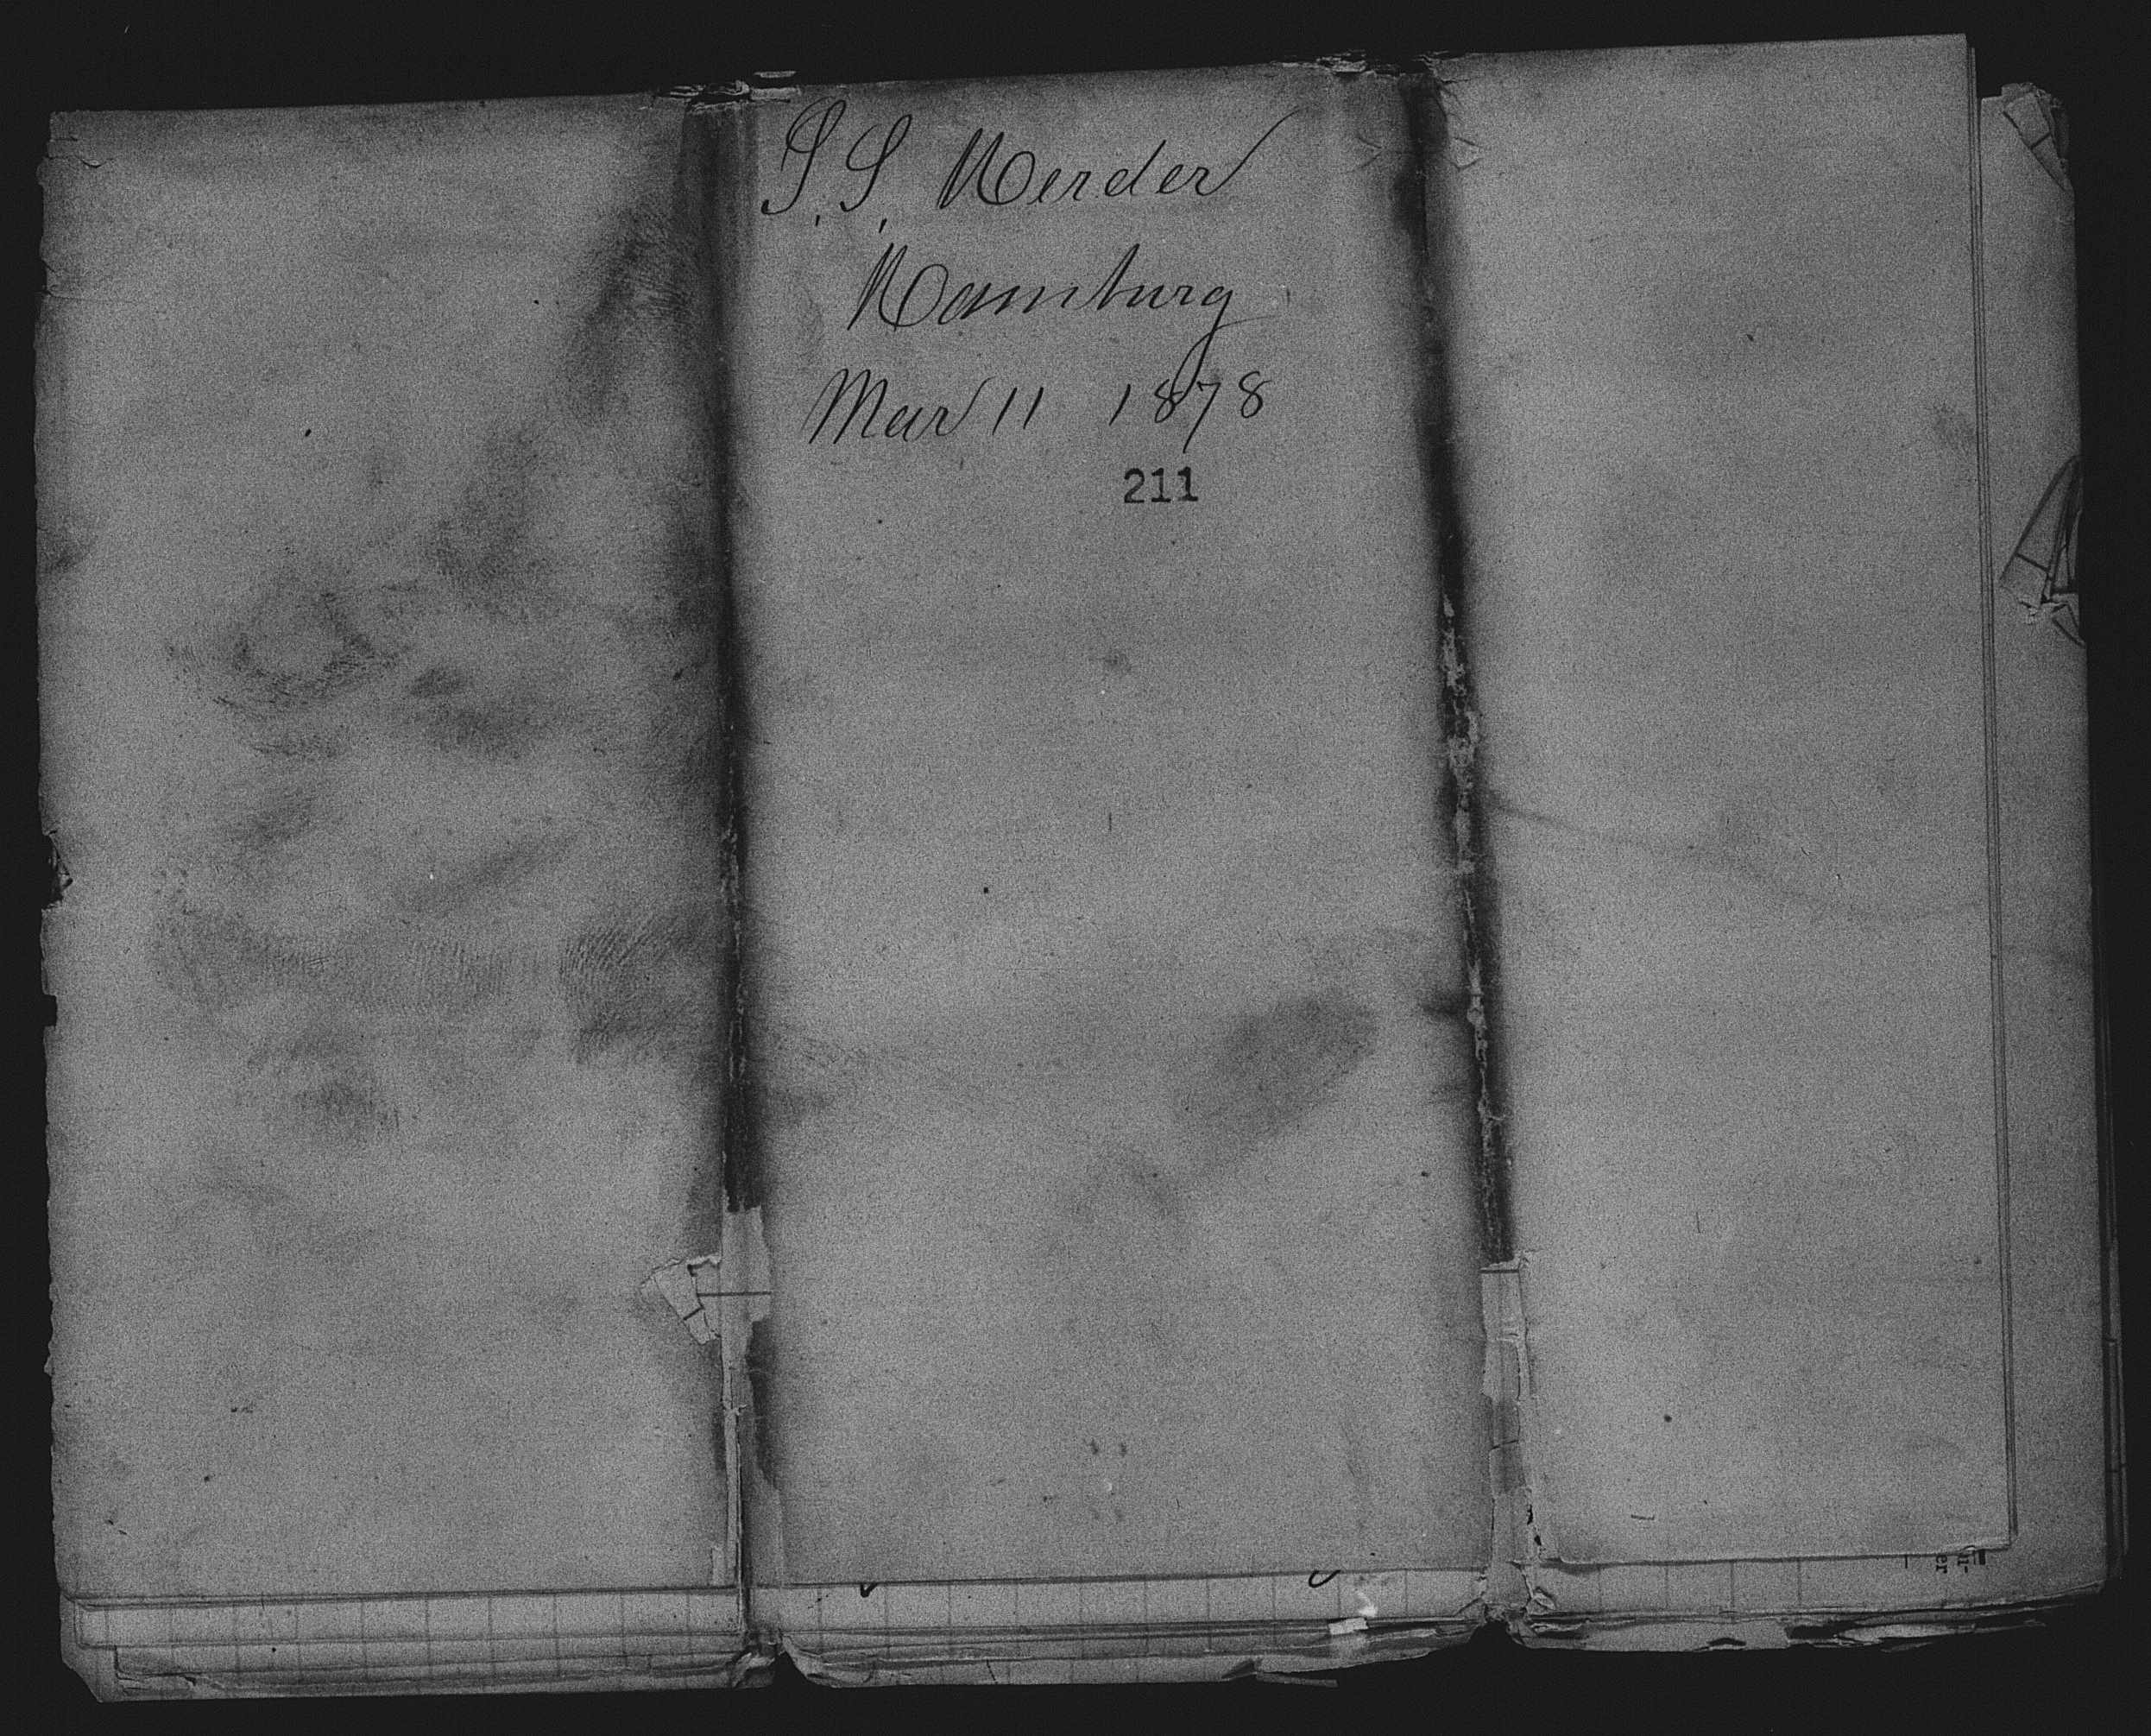 S. S. Herder
Hamburg
Mar 11 1878
211
er